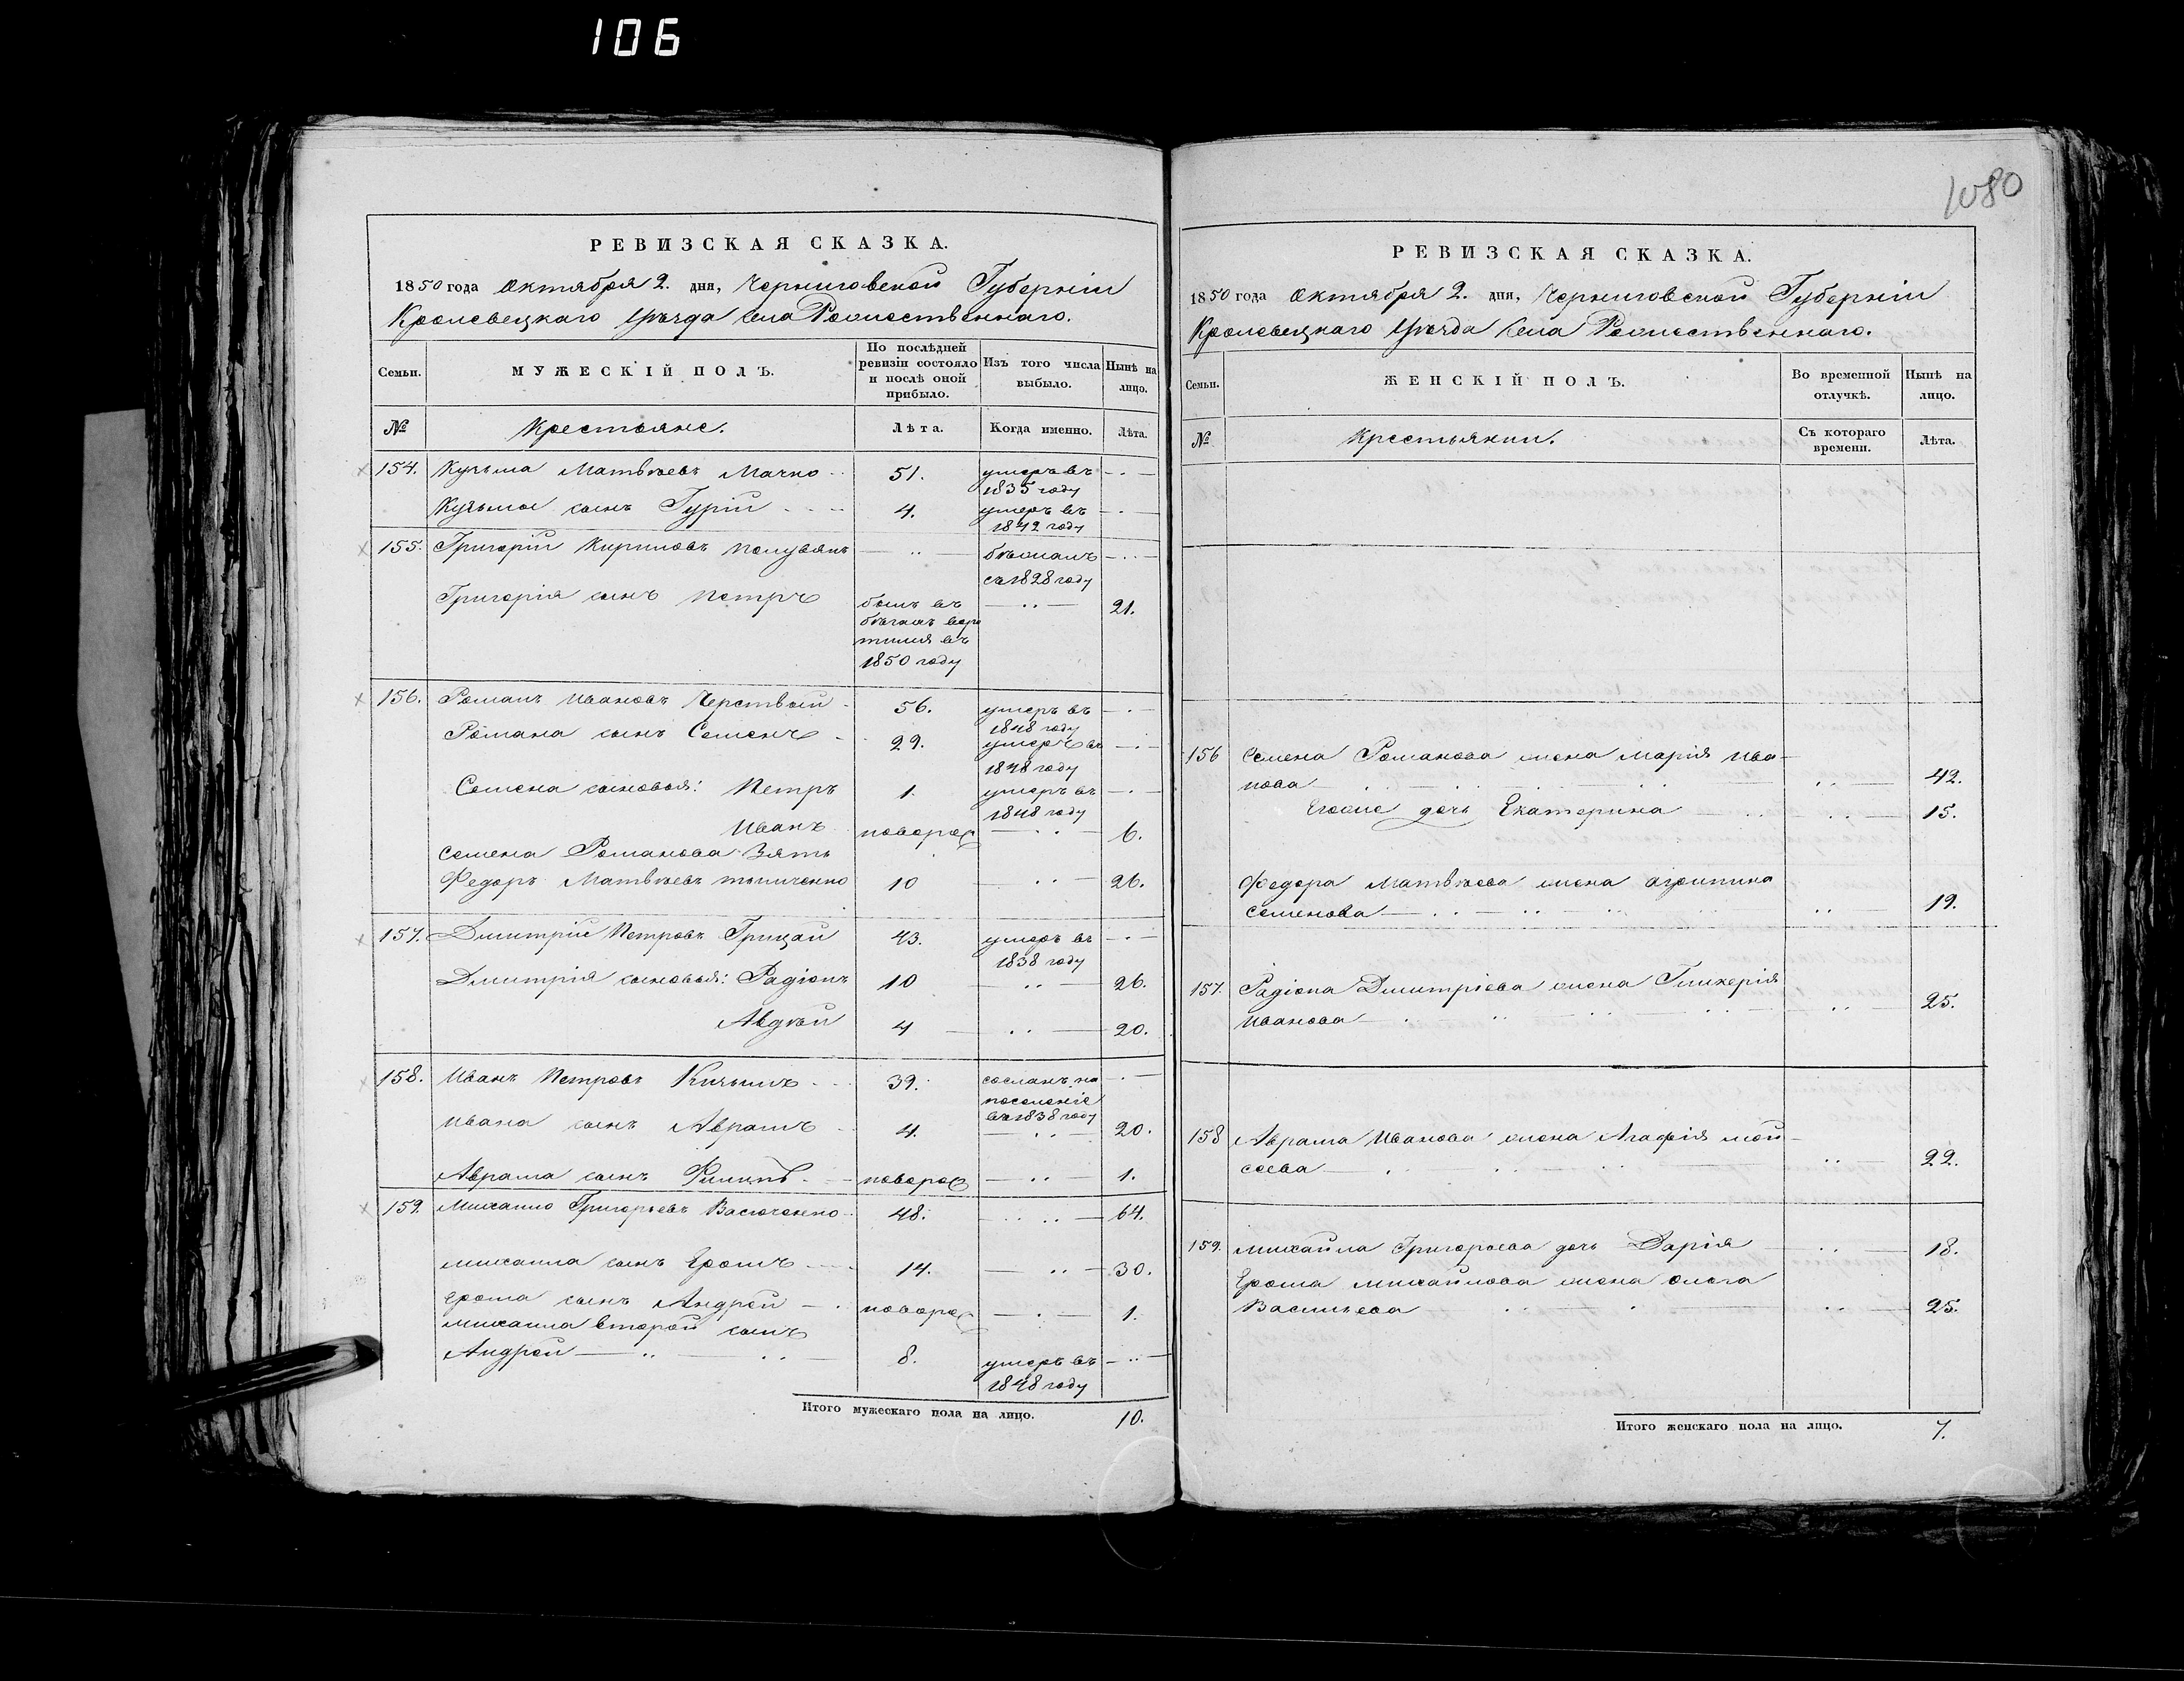 106
1080
РЕВИЗСКАЯ СКАЗКА.
1850 года Октября 2. дня, Черниговской Губерніи
Кролевецкаго Уѣзда Села Рожественнаго.
Семьи. МУЖЕСКІЙ ПОЛЪ. По послѣдней ревизіи состояло и послѣ оной прибыло. Изъ того числа выбыло. Нынѣ на лицо.
№ Крестьяне. Лѣта. Когда именно. Лѣта.
154. Кузьма Матвѣевъ Мачко 51. умеръ въ 1835 году
Кузьмы сынъ Гурій 4. умеръ въ 1842 году
155. Григорій Кириловъ бѣжалъ съ 1828 году
Григорія сынъ Петръ былъ въ бѣгахъ воро тился въ 1850 году 21.
156. Романъ Ивановъ Черствый 56. умеръ въ 1848 году
Романа сынъ Семенъ 29. умеръ въ 1848 году
Семена сыновья: Петръ 1. умеръ въ 1848 году
Иванъ новорож 6.
Семена Романова Зять
Федоръ Матвѣевъ 10 26.
157. Дмитрій Петровъ Грицай 43. умеръ въ 1838 году
Дмитрія сыновья: Радіонъ 10 26.
Авдѣй 4 20.
158. Иванъ Петровъ 39. сосланъ на поселеніе въ 1838 году
Ивана сынъ Аврамъ 4. 20.
Аврама сынъ Филипъ новорож 1.
159. Михайло Григорьевъ Васюченко 48. 64.
Михаила сынъ Ермъ 14. 30.
Ерома сынъ Андрей новорож 1.
Михаила второй сынъ
Андрей 8. умеръ въ 1848 году
Итого мужескаго пола на лицо. 10.
РЕВИЗСКАЯ СКАЗКА.
1850 года Октября 2. дня, Черниговской Губерніи
Кролевецкаго Уѣзда Села Рожественнаго.
Семьи. ЖЕНСКІЙ ПОЛЪ. Во временной отлучкѣ. Нынѣ на лицо.
№ Крестьянки. Съ котораго времени. Лѣта.
156 Семена Романова жена Марія Ива-
нова 42.
Егоже дочь Екатерина 15.
Федора Матвѣева жена Агрипина
Семенова 19.
157. Радіона Дмитріева жена Гликерія
Иванова 25.
158 Аврама Иванова жена Агафія Мой-
сеева 22.
159. Михайла Григорьева дочь Дарія 18.
Ерома Михайлова жена Олга
Васильева 25.
Итого женскаго пола на лицо. 7.